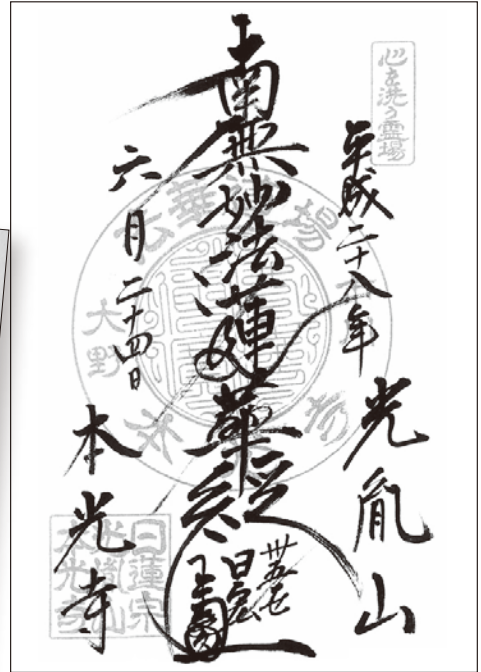 心を洗う霊場
平成二十八年
光胤山
南無妙法蓮華経
六月二十四日
本光寺
大野
日蓮宗
光胤山
本光寺